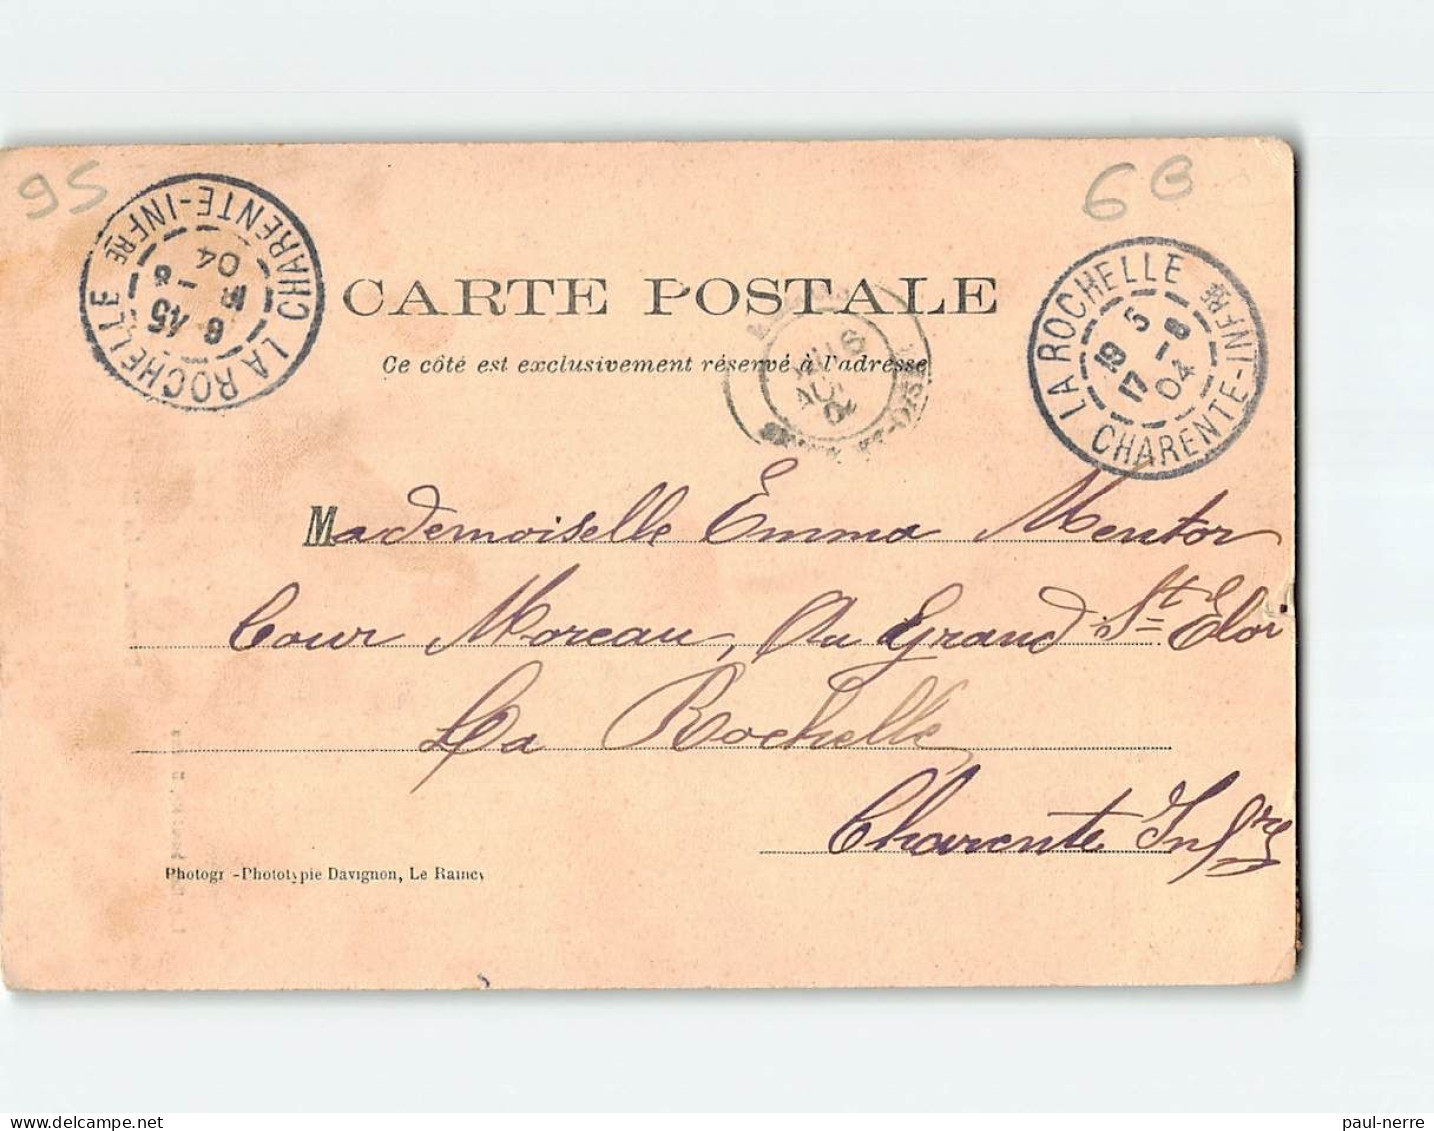 95
6B
LA ROCHELLE
CHARENTE-INFRE
6 45
04
CARTE POSTALE
Ce côté est exclusivement réservé à l'adresse
LA ROCHELLE
19 5
17 -8
04
CHARENTE-INFRE
Mademoiselle Emma Mentor
Cour Moreau, Au Grand St Eloi
La Rochelle
Charente Infre
Photogr -Phototypie Davignon, Le Raincy
paul-nerre